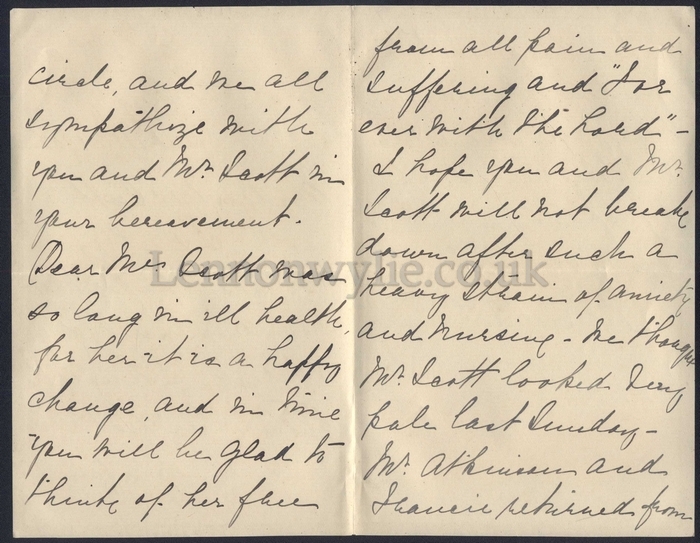 circle, and we all
sympathize with
you and Mr. Scott in
your bereavement.
Dear Mrs. Scott was
so long in ill health,
for her it is a happy
change, and in time
you will be glad to
think of her free
from all pain and
suffering and "For
ever with the Lord" -
I hope you and Mr.
Scott will not break
down after such a
heavy strain of anxiety
and nursing - we thought
Mr. Scott looked very
pale last Sunday -
Mr. Atkinson and
Francie returned from
Lennonwylie.co.uk